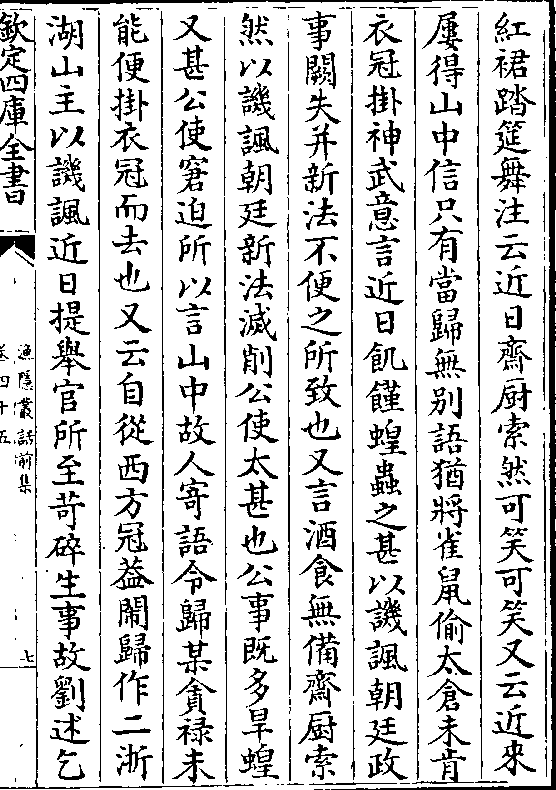 紅裙踏筵舞注云近日齋厨索然可笑可笑又云近來
屢得山中信只有當歸無别語猶將雀鼠偷太倉未肯
衣冠掛神武意言近日飢饉蝗蟲之甚以譏諷朝廷政
事闕失并新法不便之所致也又言酒食無備齋厨索
然以譏諷朝廷新法減削公使太甚也公事既多旱蝗
又甚公使窘迫所以言山中故人寄語令歸某貪禄未
能便掛衣冠而去也又云自從西方冠葢閙歸作二浙
湖山主以譏諷近日提舉官所至苛碎生事故劉述乞
欽定四庫全書
漁隠叢話前集
卷四十五
七